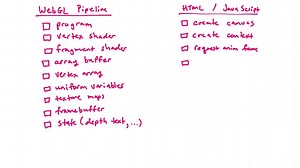 WebGL Pipeline
program
vertex shader
fragment shader
array buffer
vertex array
uniform variables
texture maps
framebuffer
state (depth test, ...)
HTML / JavaScript
create canvas
create context
request anim frame